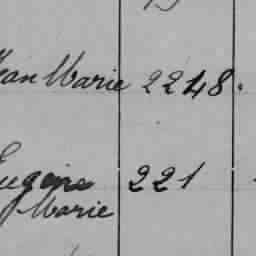 Jean Marie 2248.
Eugène 221
Marie